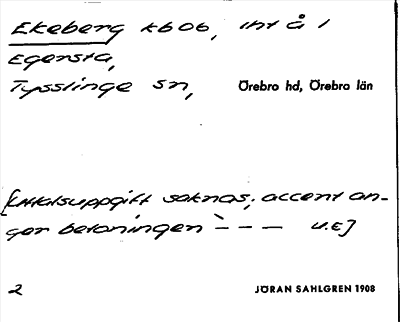 Ekeberg kbob, int å 1
Egersta,
Tysslinge sn, Örebro hd, Örebro län
[Uttalsuppgift saknas; accent an-
ger betoningen ` – – – U.E]
2 JÖRAN SAHLGREN 1908